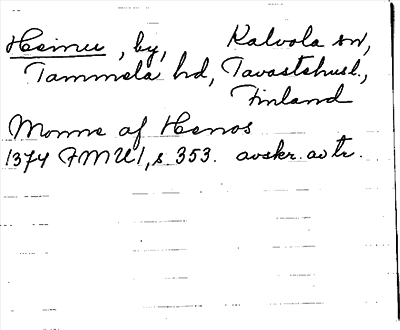 Heinu, by, Kalvola sn,
Tammela hd, Tavastehusl.,
Finland
Monns af Henos
1374 FMU I, s 353. avskr. av tr.